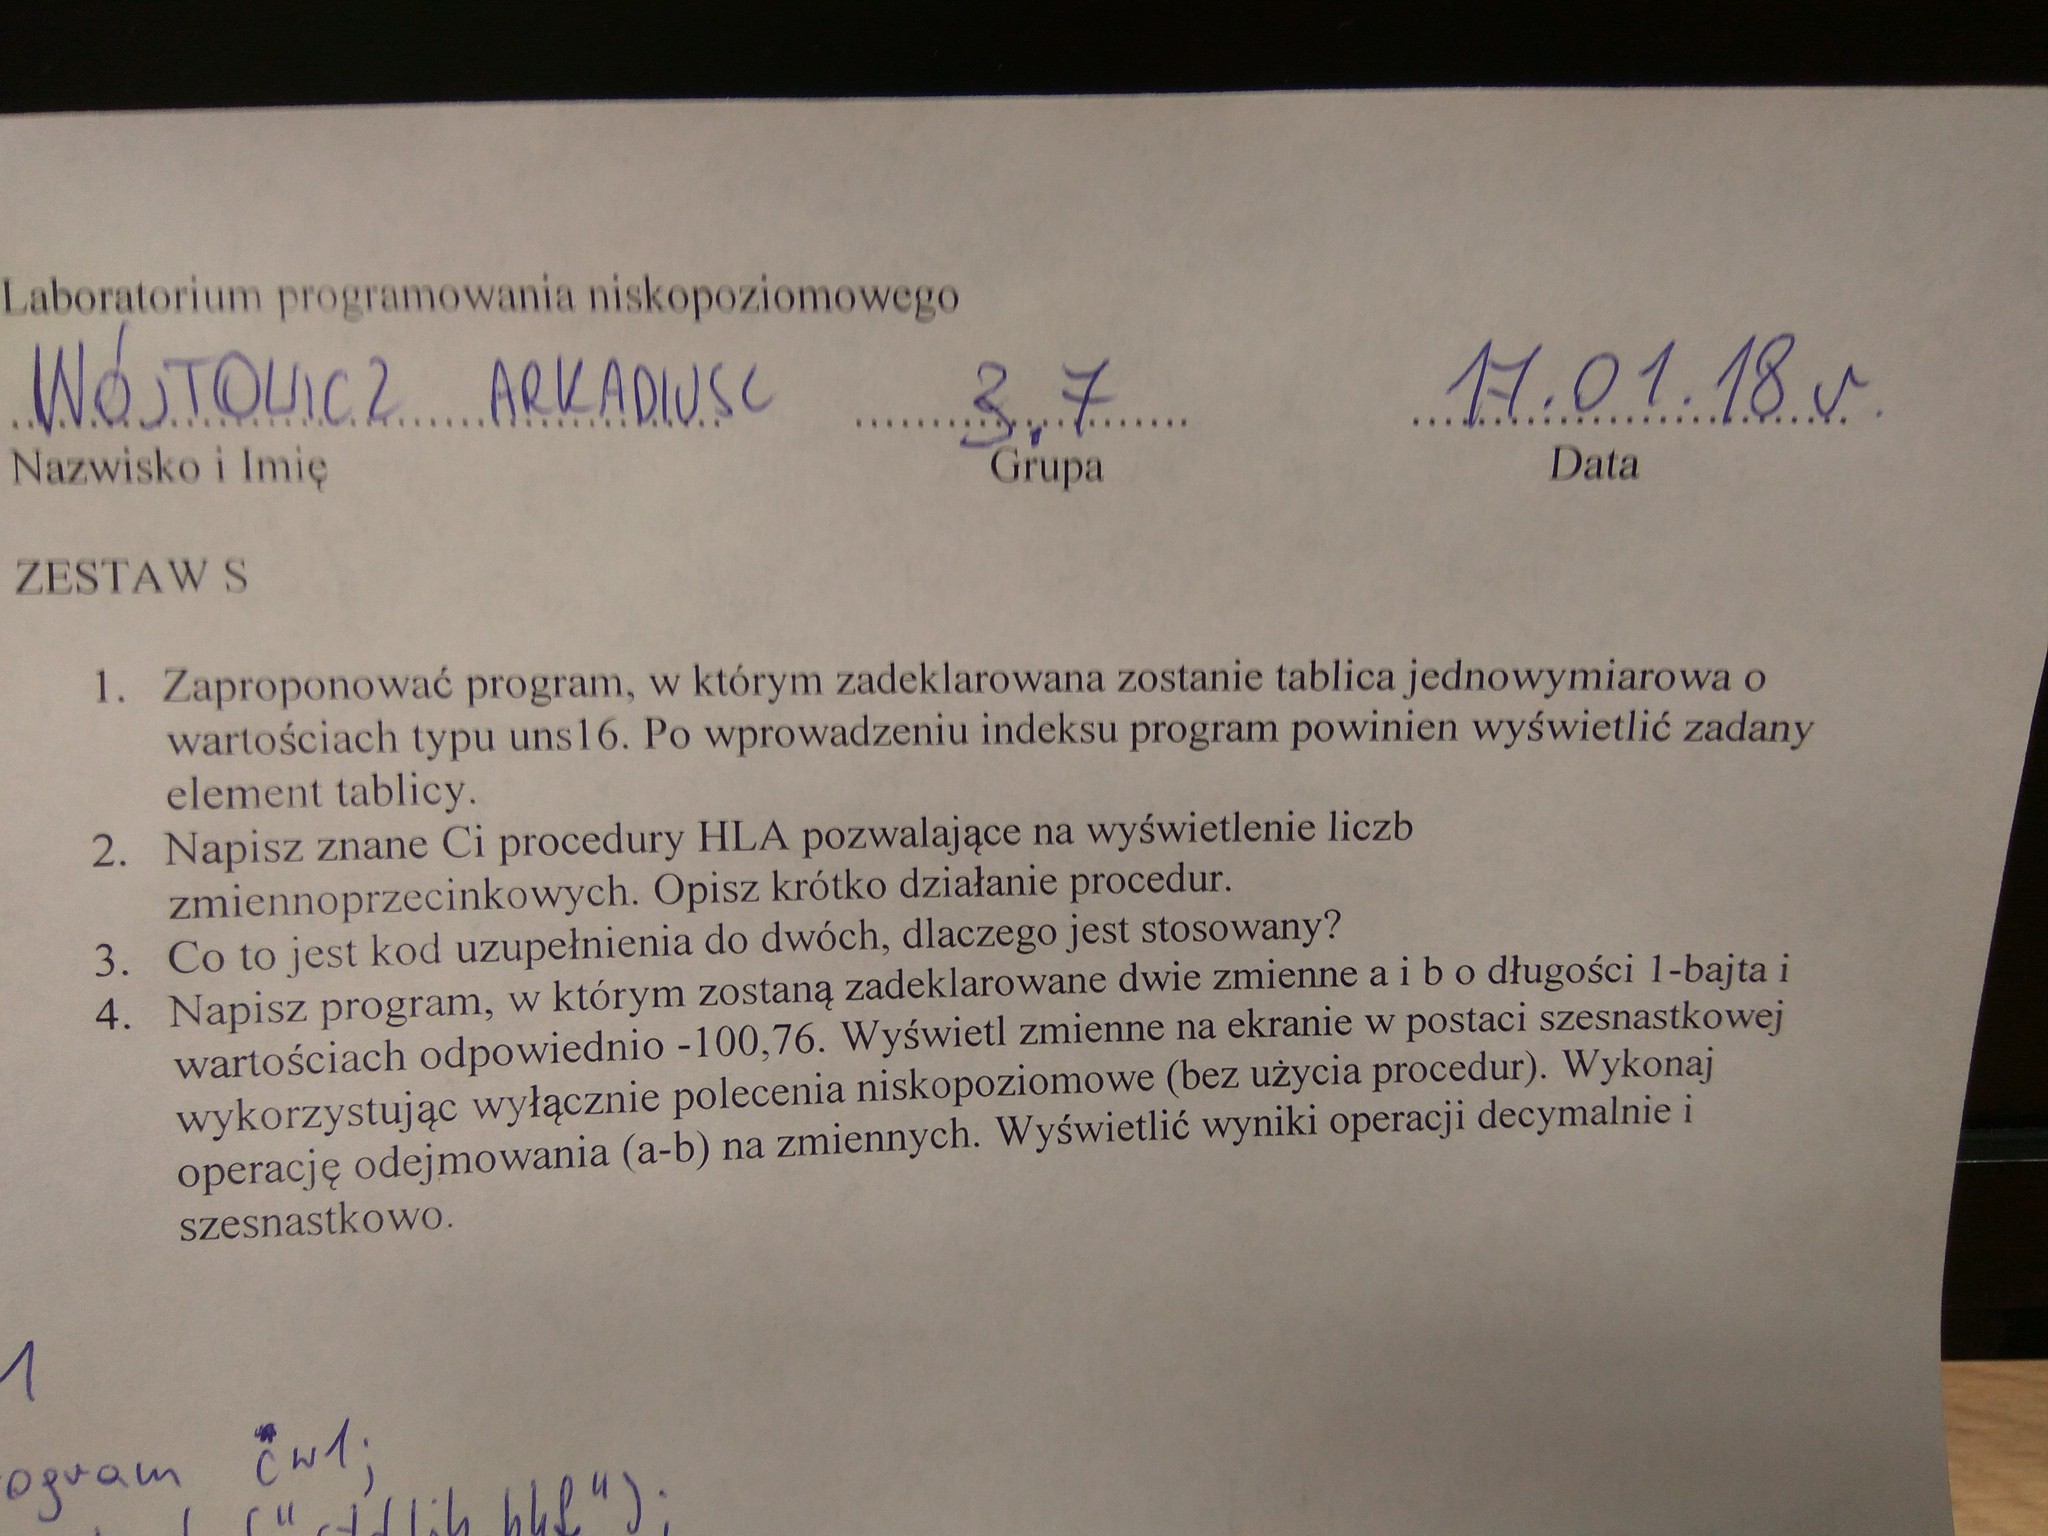 Laboratorium programowania niskopoziomowego
WÓJTOWICZ ARKADIUSZ 3.7 17.01.18 r.
Nazwisko i Imię Grupa Data
ZESTAW S
1. Zaproponować program, w którym zadeklarowana zostanie tablica jednowymiarowa o
wartościach typu uns16. Po wprowadzeniu indeksu program powinien wyświetlić zadany
element tablicy.
2. Napisz znane Ci procedury HLA pozwalające na wyświetlenie liczb
zmiennoprzecinkowych. Opisz krótko działanie procedur.
3. Co to jest kod uzupełnienia do dwóch, dlaczego jest stosowany?
4. Napisz program, w którym zostaną zadeklarowane dwie zmienne a i b o długości 1-bajta i
wartościach odpowiednio -100,76. Wyświetl zmienne na ekranie w postaci szesnastkowej
wykorzystując wyłącznie polecenia niskopoziomowe (bez użycia procedur). Wykonaj
operację odejmowania (a-b) na zmiennych. Wyświetlić wyniki operacji decymalnie i
szesnastkowo.
1
ogram ćw1;
("stdlib.hhf");